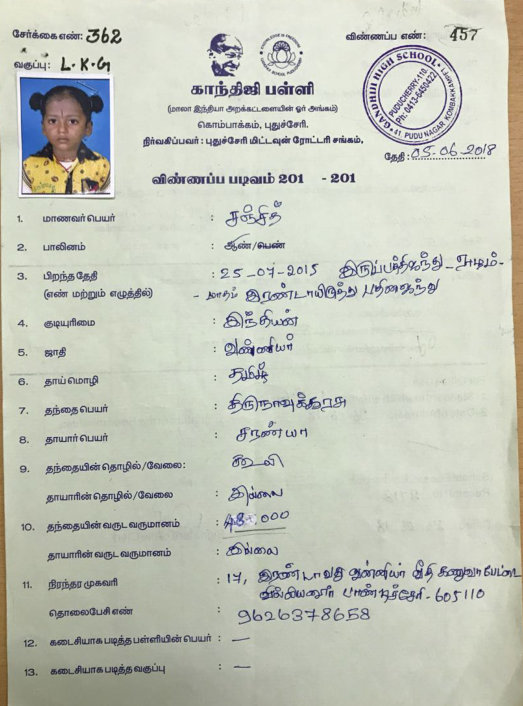 சேர்க்கை எண்: 362
விண்ணப்ப எண்: 457
வகுப்பு: L.K.G
காந்திஜி பள்ளி
(மாலா இந்தியா அறக்கட்டளையின் ஓர் அங்கம்)
கொம்பாக்கம், புதுச்சேரி.
நிர்வகிப்பவர் : புதுச்சேரி மிட்டவுன் ரோட்டரி சங்கம்,
GANDHIJI HIGH SCHOOL
PUDUCHERRY-110.
41 PUDU NAGAR
தேதி : 05-06-2018
விண்ணப்ப படிவம் 201 - 201
1. மாணவர் பெயர் :
2. பாலினம் : ஆண்/பெண்
3. பிறந்த தேதி : 25-07-2015 இருபத்திஐந்து - ஏழாம்-
(எண் மற்றும் எழுத்தில்) - மாதம் இரண்டாயிரத்து பதினைந்து
4. குடியுரிமை : இந்தியன்
5. ஜாதி : வன்னியர்
6. தாய் மொழி : தமிழ்
7. தந்தை பெயர் : திருநாவுக்கரசு
8. தாயார் பெயர் : சரண்யா
9. தந்தையின் தொழில்/வேலை: கூலி
தாயாரின் தொழில்/வேலை : இல்லை
10. தந்தையின் வருட வருமானம் : 48,000
தாயாரின் வருட வருமானம் : இல்லை
11. நிரந்தர முகவரி : 17, இரண்டாவது வன்னியர் வீதி கணுவாபேட்டை
வில்லியனூர் பாண்டிச்சேரி - 605110
தொலைபேசி எண் : 9626378658
12. கடைசியாக படித்த பள்ளியின் பெயர் : —
13. கடைசியாக படித்த வகுப்பு : —